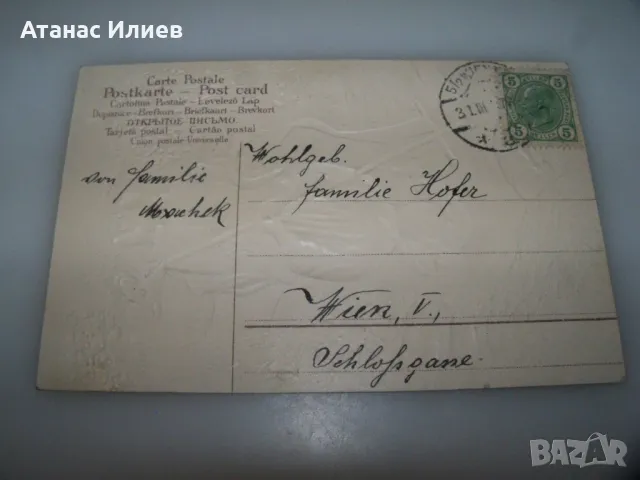 Атанас Илиев
Carte Postale
Postkarte – Post card
Cartolina Postale – Levelező Lap
Dopisnice – Brefkort – Briefkaart – Brevkort
ОТКРЫТОЕ ПИСЬМО
Tarjeta postal – Cartão postal
Union postale Universelle
5 5
5 5
WIEN
3.I.
von familie
Wohlgeb.
familie Hofer
Wien, V.,
Schloßgasse.
BAZAR